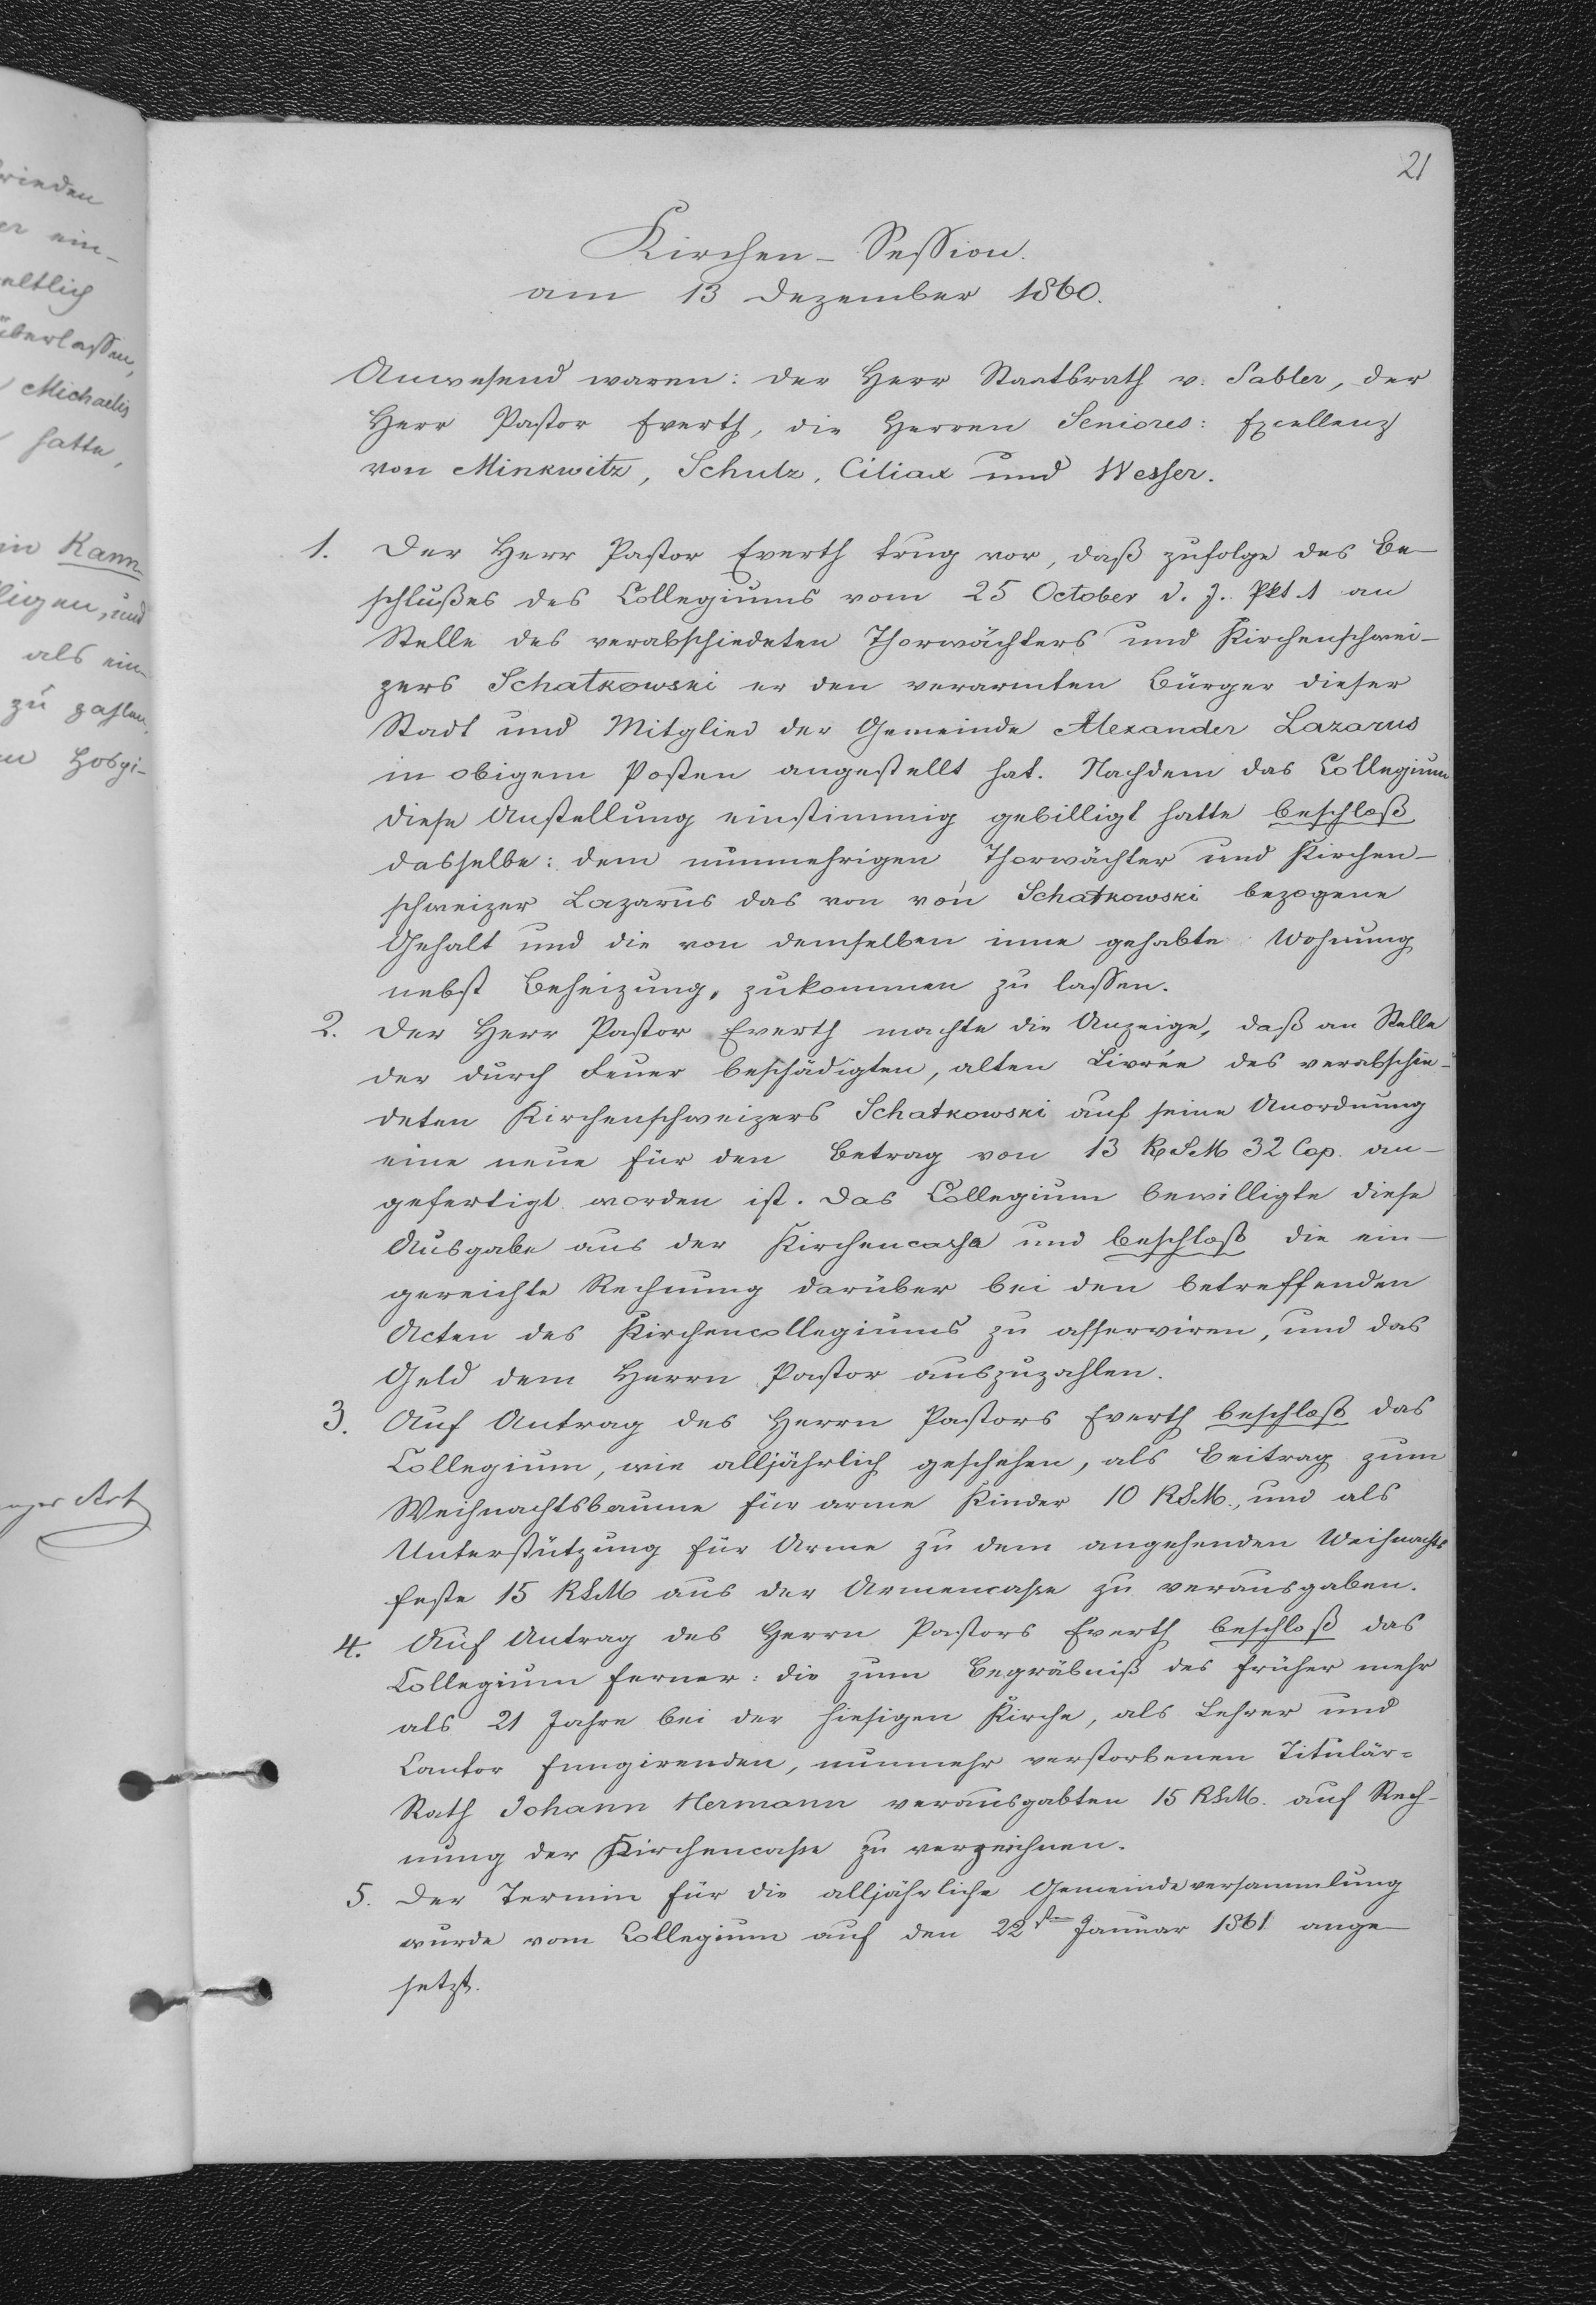 21
Kirchen-Session.
am 13 Dezember 1860.
Anwesend waren: der Herr Staatsrath v. Sabler, der
Herr Pastor Everth, die Herren Seniores: Excellenz
von Minkwitz, Schulz, Ciliax und Wesser.
1. Der Herr Pastor Everth trug vor, daß zufolge des Be-
schlußes des Collegiums vom 25 October d. J. Pkt 1 an
Stelle des verabschiedeten Thorwächters und Kirchenschwei-
zers Schatkowski er den verarmten Bürger dieser
Stadt und Mitglied der Gemeinde Alexander Lazarus
in obigem Posten angestellt hat. Nachdem das Collegium
diese Anstellung einstimmig gebilligt hatte beschloß
dasselbe: dem nunmehrigen Thorwächter und Kirchen-
schweizer Lazarus das von von Schatkowski bezogene
Gehalt und die von demselben inne gehabte Wohnung
nebst Beheizung, zukommen zu lassen.
2. Der Herr Pastor Everth machte die Anzeige, daß an Stelle
der durch Feuer beschädigten, alten Livrée des verabschie-
deten Kirchenschweizers Schatkowski auf seine Anordnung
eine neue für den Betrag von 13 RSM 32 Cop. an-
gefertigt worden ist. Das Collegium bewilligte diese
Ausgabe aus der Kirchencassa und beschloß die ein-
gereichte Rechnung darüber bei den betreffenden
Acten des Kirchencollegiums zu asserviren, und das
Geld dem Herrn Pastor auszuzahlen.
3. Auf Antrag des Herrn Pastors Everth beschloß das
Collegium, wie alljährlich geschehen, als Beitrag zum
Weihnachtsbaume für arme Kinder 10 RSM., und als
Unterstützung für Arme zu dem angehenden Weihnachts
feste 15 RSM aus der Armencasse zu verausgaben.
4. Auf Antrag des Herrn Pastors Everth beschloß das
Collegium ferner: die zum Begräbniß des früher mehr
als 21 Jahre bei der hiesigen Kirche, als Lehrer und
Cantor fungirenden, nunmehr verstorbenen Titulär-
Rath Johann Hermann verausgabten 15 RSM. auf Rech-
nung der Kirchencasse zu verzeichnen.
5. Der Termin für die alljährliche Gemeindeversammlung
wurde vom Collegium auf den 22ten Januar 1861 ange-
setzt.
er ein-
überlassen,
Michaelis
hatte,
Kann
ligen, und
als ein-
zu zahlen,